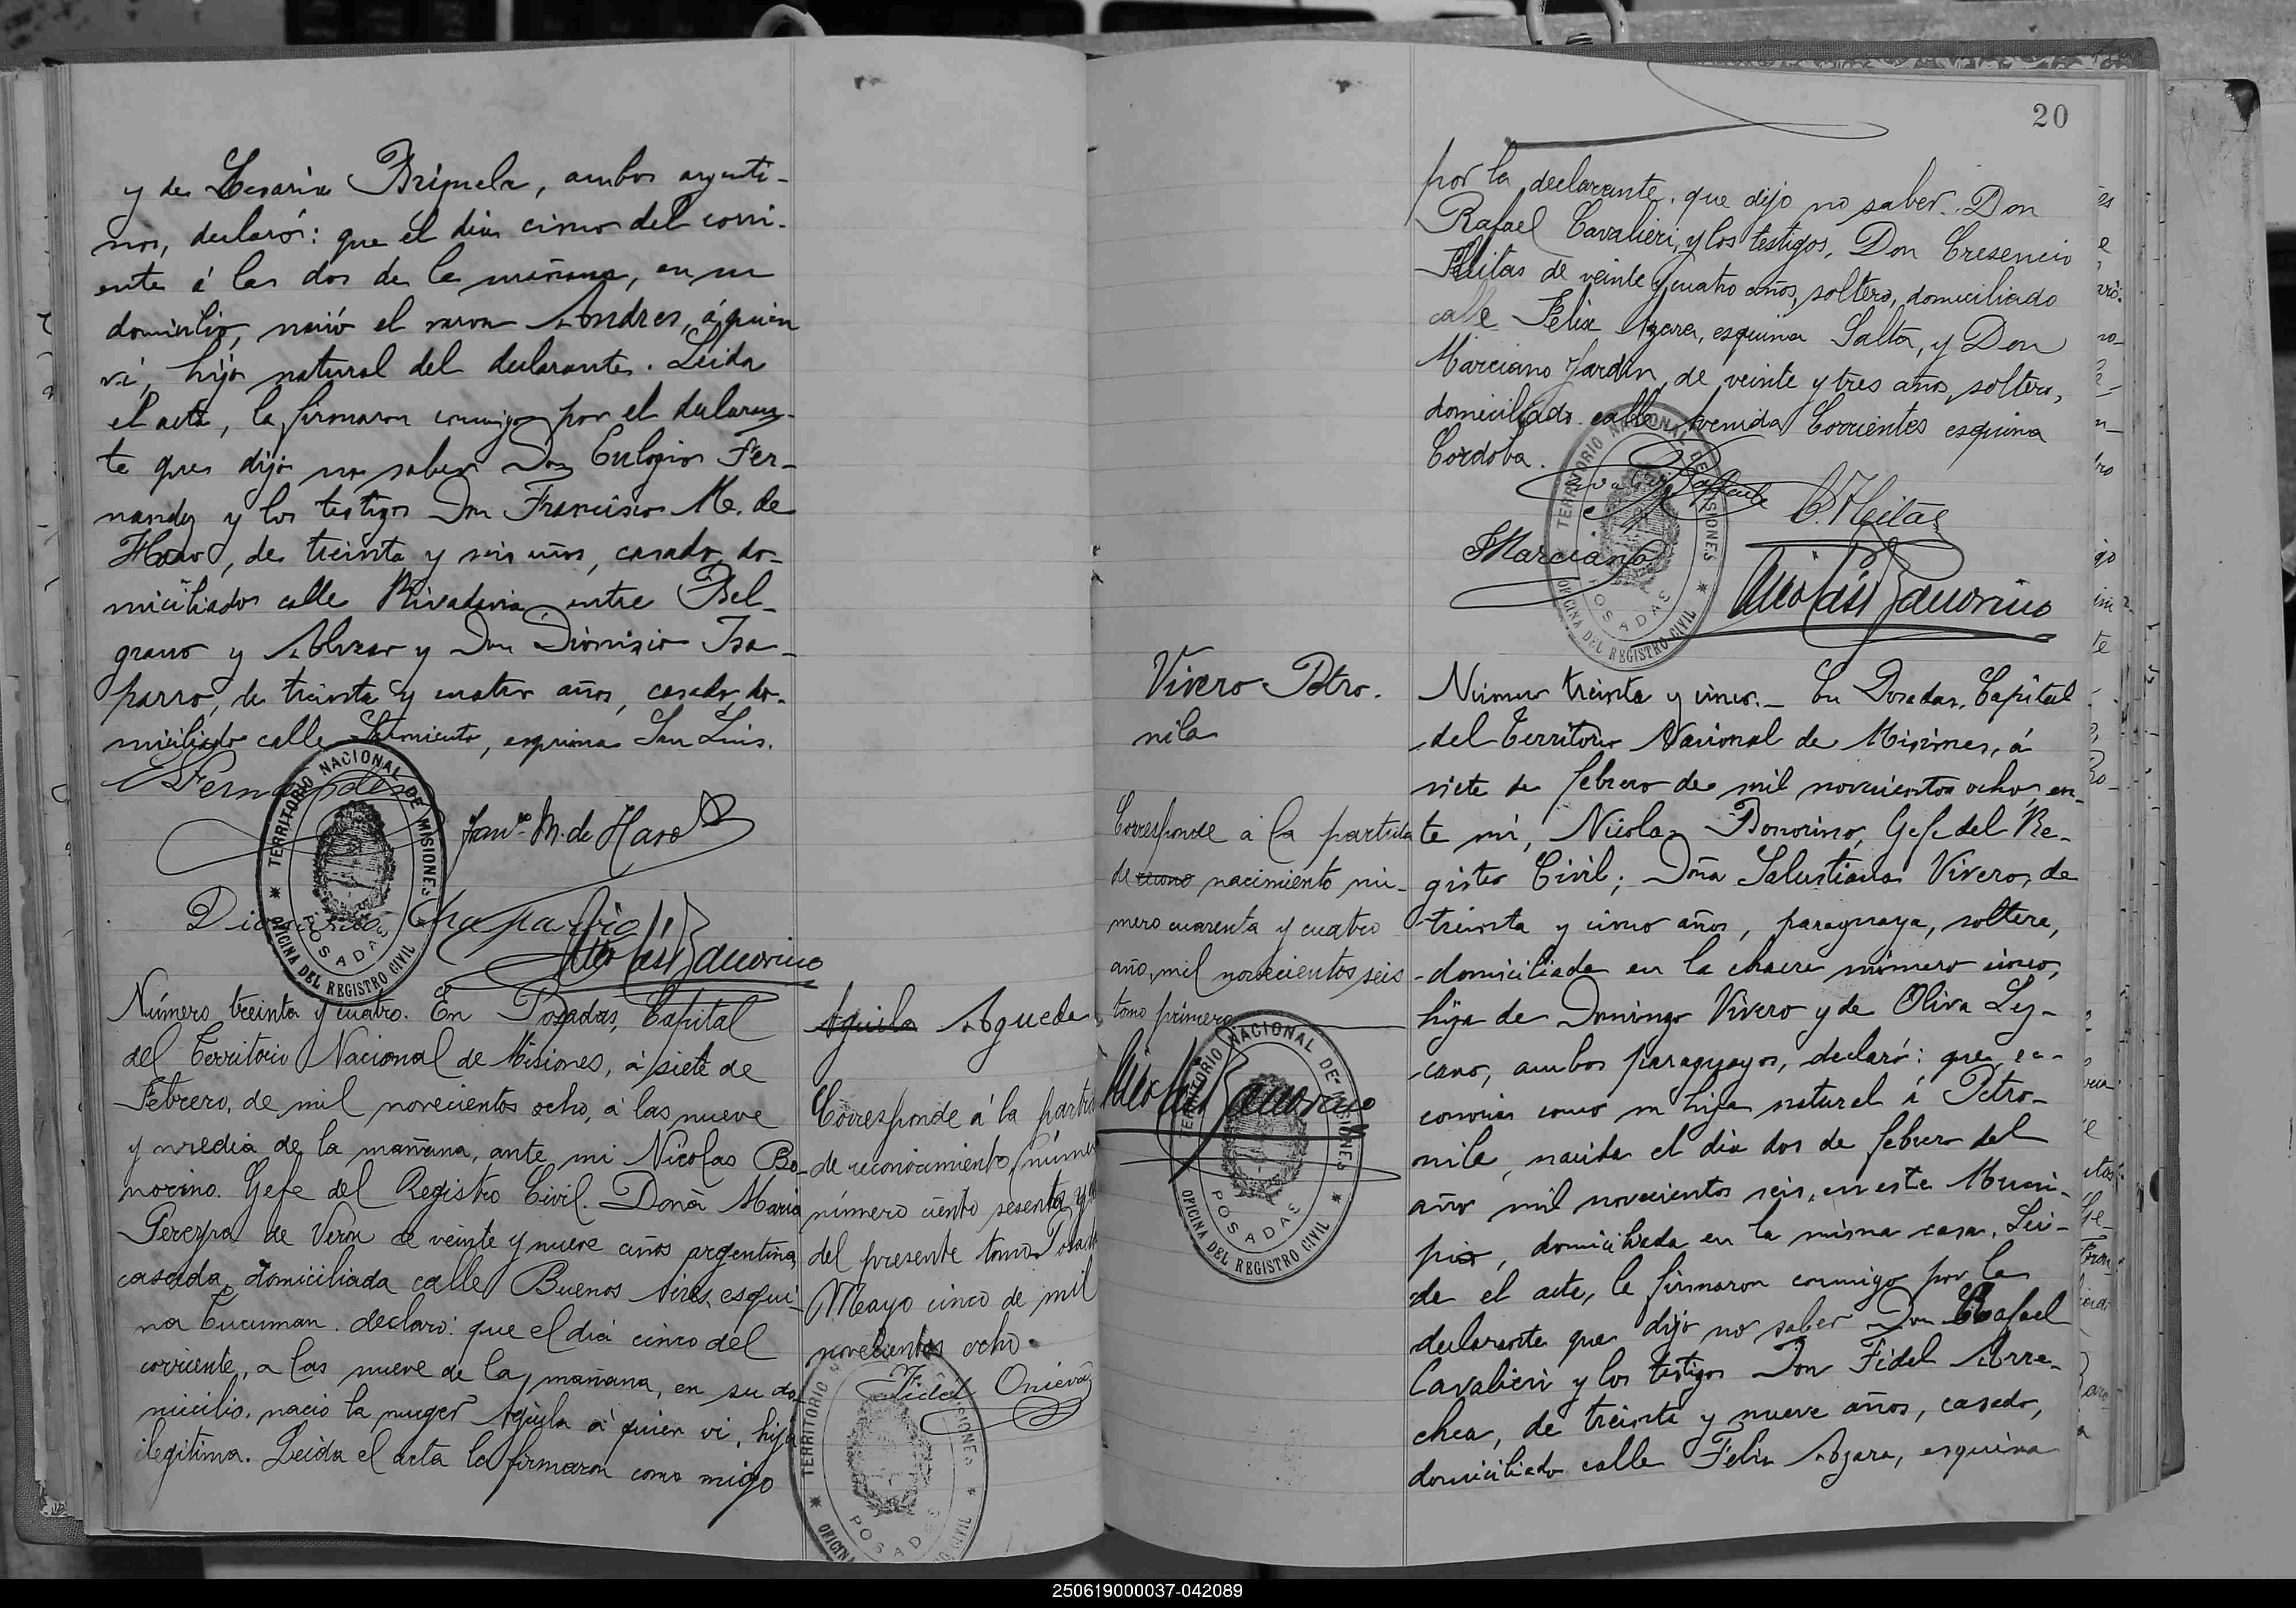 y de Cesaria Briñuela, ambos argenti-
nos, declaró: que el dia cinco del corri-
ente á las dos de la mañana, en su
domicilio, nació el varon Andres, á quien
vi, hijo natural del declarante. Leida
el acta, la firmaron conmigo por el declaran-
te que dijo no saber Don Eulogio Fer-
nandez y los testigos Don Francisco M. de
Haro, de treinta y seis años, casado, do-
miciliado calle Rivadavia entre Bel-
grano y Alvear y Don Dionisio Cha-
parro, de treinta y cuatro años, casado, do-
miciliado calle Sarmiento, esquina San Luis.
E Fernandez
Fran.co M. de Haro
Dionisio Chaparro
Nicolás Bonorino
TERRITORIO NACIONAL DE MISIONES
OFICINA DEL REGISTRO CIVIL
POSADAS
Número treinta y cuatro. En Posadas, Capital
del Territorio Nacional de Misiones, á siete de
Febrero, de mil novecientos ocho, á las nueve
y media de la mañana, ante mi Nicolas Bo-
norino. Gefe del Registro Civil. Doña Maria
Pereyra de Veron de veinte y nueve años argentina,
casada, domiciliada calle Buenos Aires, esqui-
na Tucuman. declaró: que el dia cinco del
corriente, a las nueve de la mañana, en su do-
micilio, nació la muger Aguila á quien vi, hija
ilegitima. Leida el acta la firmaron como migo
Aguila Agueda
Corresponde á la partida
de reconocimiento (núme
número ciento sesenta y
del presente tomo. Posadas
Mayo cinco de mil
novecientos ocho.
Fidel Onieva
TERRITORIO MISIONES
OFICINA CIVIL
POSADAS
20
por la declarante, que dijo no saber. Don
Rafael Cavalieri, y los testigos, Don Cresencio
Fleitas de veinte y cuatro años, soltero, domiciliado
calle Felix Azara, esquina Salta, y Don
Marciano Jardin, de veinte y tres años, soltero,
domiciliado calle Avenida Corrientes esquina
Cordoba.
Cavalieri Raffaele
C. Fleitas
Marciano
Nicolás Bonorino
TERRITORIO NACIONAL DE MISIONES
OFICINA DEL REGISTRO CIVIL
POSADAS
Vivero Petro-
nila
Corresponde á la partida
de recono nacimiento nú-
mero cuarenta y cuatro
año, mil novecientos seis
tomo primero
Nicolás Bonorino
TERRITORIO NACIONAL DE MISIONES
OFICINA DEL REGISTRO CIVIL
POSADAS
Número treinta y cinco. _ En Posadas, Capital
del Territorio Nacional de Misiones, á
siete de febrero de mil novecientos ocho, an-
te mi, Nicolas Bonorino, Gefe del Re-
gistro Civil; Doña Salustiana Vivero, de
treinta y cinco años, paraguaya, soltera,
domiciliada en la chacra número cinco,
hija de Domingo Vivero y de Oliva Lez-
cano, ambos paraguayos, declaró: que re-
conocia como su hija natural á Petro-
nila, nacida el dia dos de febrero del
año mil novecientos seis, en este Munici-
pio, domiciliada en la misma casa. Lei-
da el acta, la firmaron conmigo por la
declarante que dijo no saber Don Rafael
Cavalieri y los testigos Don Fidel Arre-
chea, de treinta y nueve años, casado,
domiciliado calle Felix Azara, esquina
250619000037-042089